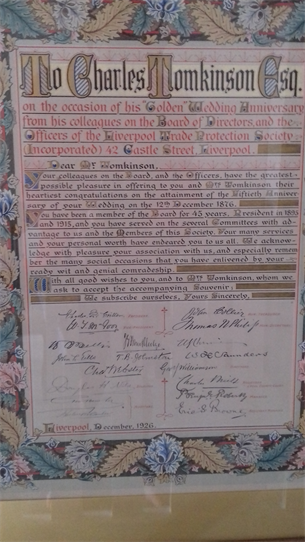 To Charles Tomkinson Esq.
on the occasion of his Golden Wedding Anniversary
from his colleagues on the Board of Directors, and the
Officers of the Liverpool Trade Protection Society
Incorporated) 42 Castle Street, Liverpool.
Dear Mr Tomkinson,
Your colleagues on the Board, and the Officers, have the greatest
possible pleasure in offering to you and Mrs Tomkinson their
heartiest congratulations on the attainment of the Fiftieth Anniver
sary of your Wedding on the 12th December 1876.
You have been a member of the Board for 43 years, President in
and 1915, and you have served on the several Committees with ad-
vantage to us and the Members of this Society. Your many services
and your personal worth have endeared you to us all. We acknow-
ledge with pleasure your association with us, and especially remem-
ber the many social occasions that you have enlivened by your
ready wit and genial comradeship.
With all good wishes to you and to Mrs Tomkinson, whom we
ask to accept the accompanying Souvenir;
We subscribe ourselves, Yours Sincerely,
Thomas W.
T. B. Johnston
Saunders
Chas Webster
Charles
Liverpool, December, 1926.